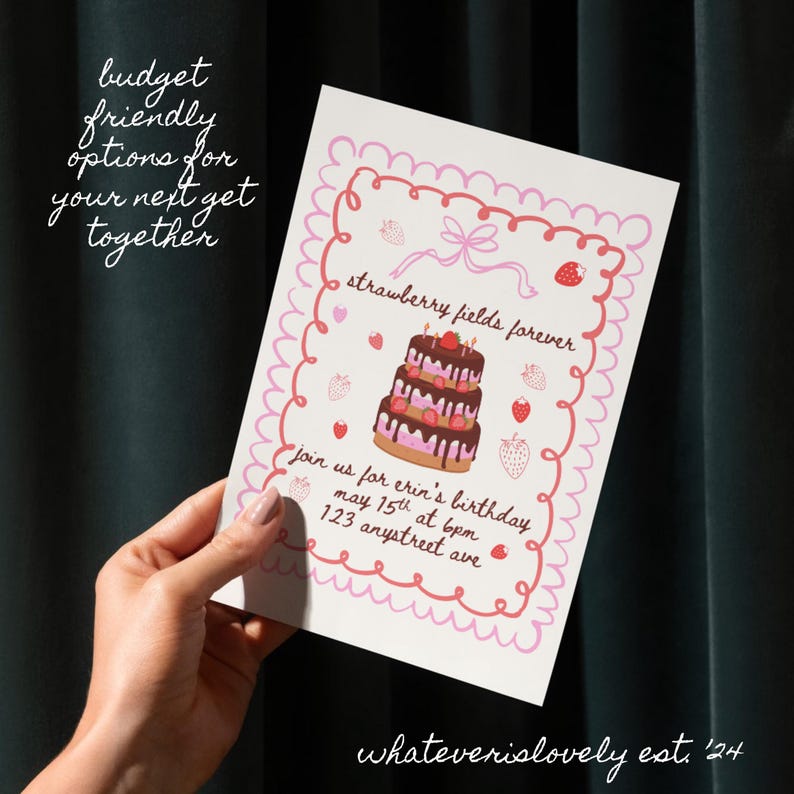 budget
friendly
options for
your next get
together
strawberry fields forever
join us for erin's birthday
may 15th at 6pm
123 anystreet ave
whateverislovely est. '24